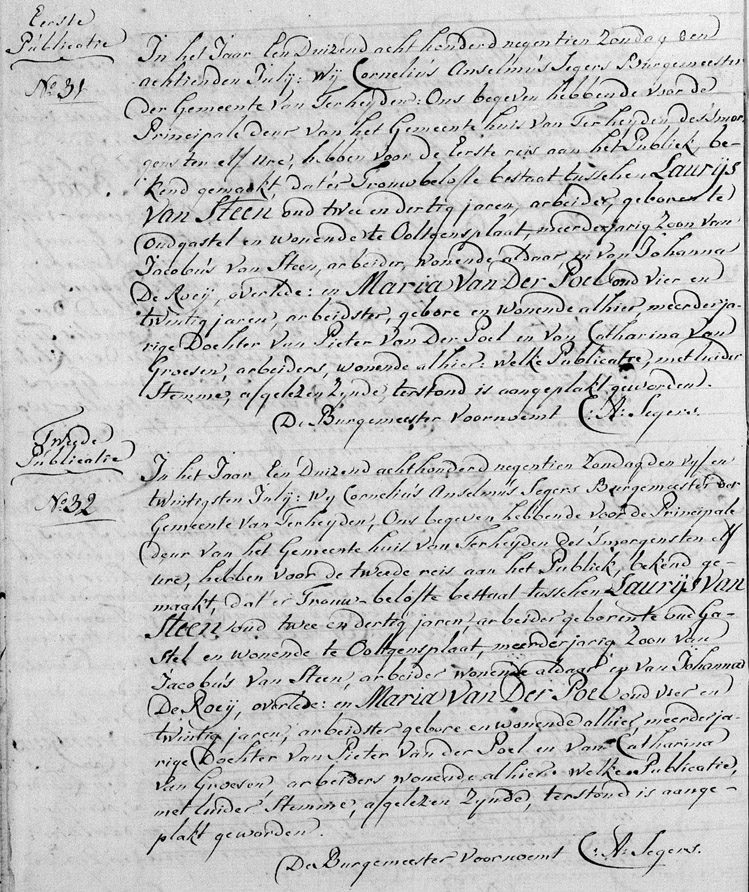 Eerste
Publicatie
No. 31
In het Jaar Een Duizend acht honderd negentien Zondag den
achtienden July: Wij Cornelius Anselmus Segers Burgemeester
der Gemeente van Terheyden: Ons begeven hebbende voor de
Principale deur van het Gemeente huis van Terheyden des smor-
gens ten elf ure, hebben voor de Eerste reis aan het Publiek, be-
kend gemaakt, dat er Trouw belofte bestaat tusschen Laurijs
Van Steen oud twee en dertig jaren, arbeider, geboren te
oudgastel en wonende te Ooltgensplaat, meerderjarig Zoon van
Jacobus van Steen, arbeider, wonende aldaar, en van Johanna
De Roeij, overlede: en Maria Van Der Poel oud vier en
twintig jaren, arbeidster, gebore en wonende alhier, meerderja-
rige Dochter van Pieter Van Der Poel en van Catharina Van
Groesen, arbeiders, wonende alhier: Welke Publicatie, met luider
Stemme, afgelezen Zynde, terstond is aangeplakt geworden.
De Burgemeester Voornoemt C: A: Segers.
Twede
Publicatie
No. 32
In het Jaar Een Duizend acht honderd negentien Zondag den vyf en
twintigsten July: Wy Cornelius Anselmus Segers Burgemeester der
Gemeente van Terheyden, Ons begeven hebbende voor de Principale
deur van het Gemeente huis van Terheyden des smorgens ten elf
ure, hebben voor de tweede reis aan het Publiek, bekend ge-
maakt, dat er Trouw-belofte bestaat tusschen Laurijs Van
Steen, oud twee en dertig jaren, arbeider geboren te oud Ga-
stel en wonende te Ooltgensplaat, meerderjarig Zoon van
Jacobus van Steen, arbeider wonende aldaar en van Johanna
De Roeij, overlede: en Maria Van Der Poel oud vier en
twintig jaren, arbeidster gebore en wonende alhier meerderja-
rige Dochter van Pieter van der Poel en van Catharina
van Groesen, arbeiders wonende alhier: Welke Publicatie,
met luider Stemme, afgelezen Zynde, terstond is aange-
plakt geworden.
De Burgemeester Voornoemt C: A: Segers.